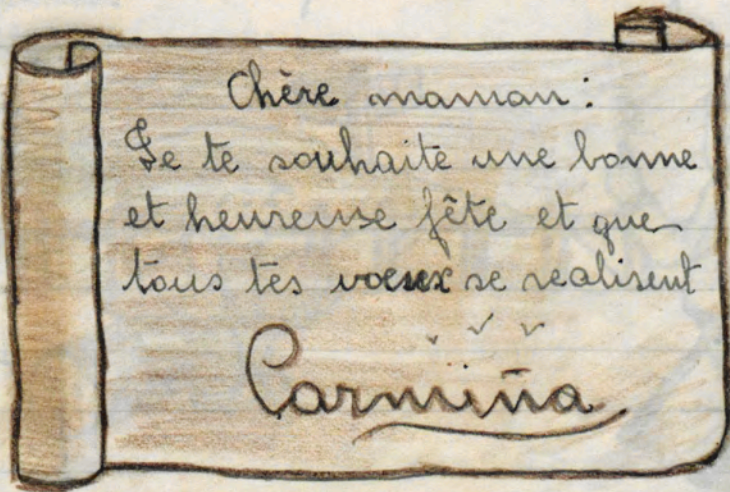 Chère maman :
Je te souhaite une bonne
et heureuse fête et que
tous tes vœux se realisent
Carmiña